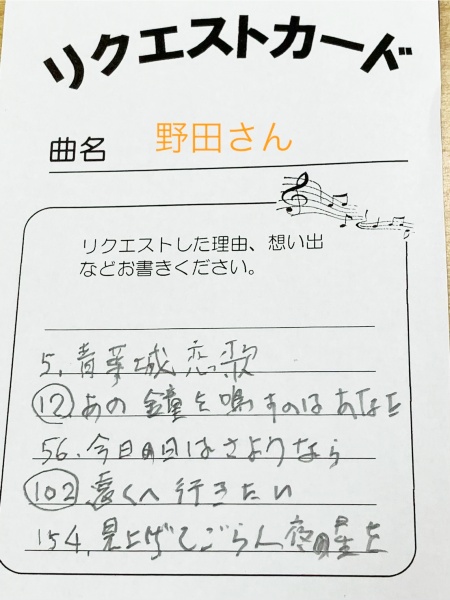 リクエストカード
曲名 野田さん
リクエストした理由、想い出
などお書きください。
5. 青葉城恋歌
⑫ あの鐘を鳴すのはあなた
56. 今日の日はさようなら
(102) 遠くへ行きたい
154. 見上げてごらん夜の星を